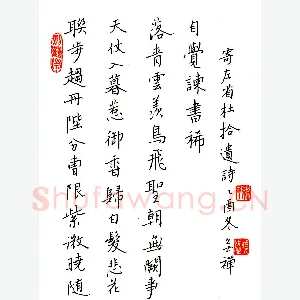 聯步趨丹陛分曹限紫微曉隨
天仗入暮惹御香歸白髮悲花
落青雲羨鳥飛聖朝無闕事
自覺諫書稀
寄左省杜拾遺詩乙酉冬禪
Shufawang.CN